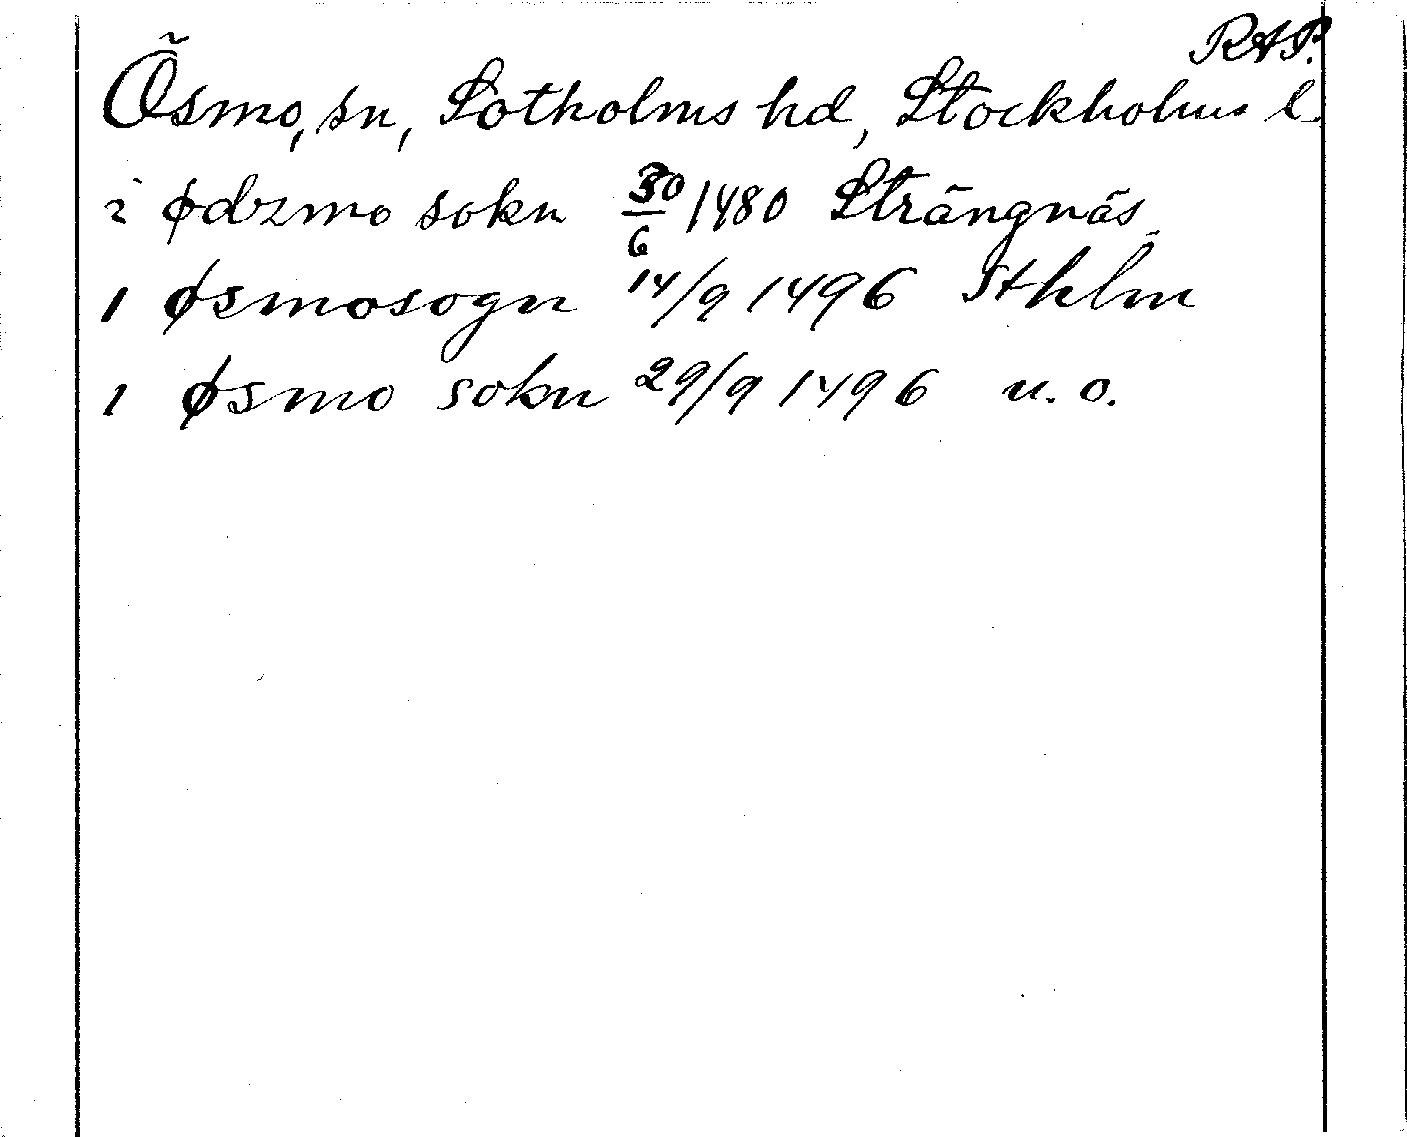 RAP.
Ösmo, sn, Sotholms hd, Stockholms l.
i ødzmo sokn 30/6 1480 Strängnäs
i øsmosogn 14/9 1496 Sthlm
i øsmo sokn 29/9 1496 u. o.